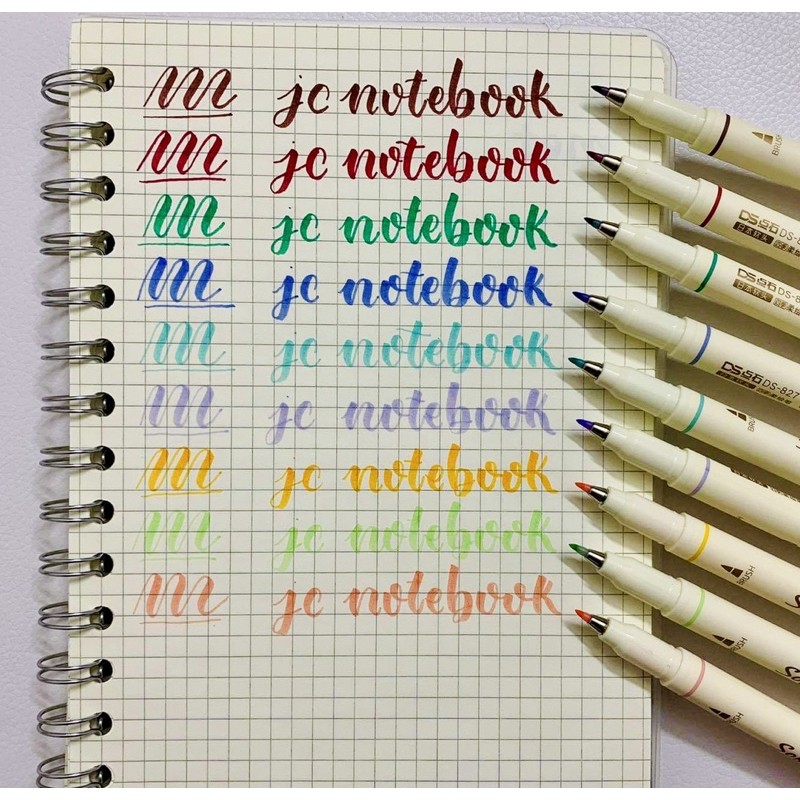 jc notebook
jc notebook
jc notebook
jc notebook
jc notebook
jc notebook
jc notebook
jc notebook
jc notebook
BRUSH
DS
DS
DS DS-827
BRUSH
BRUSH
BRUSH